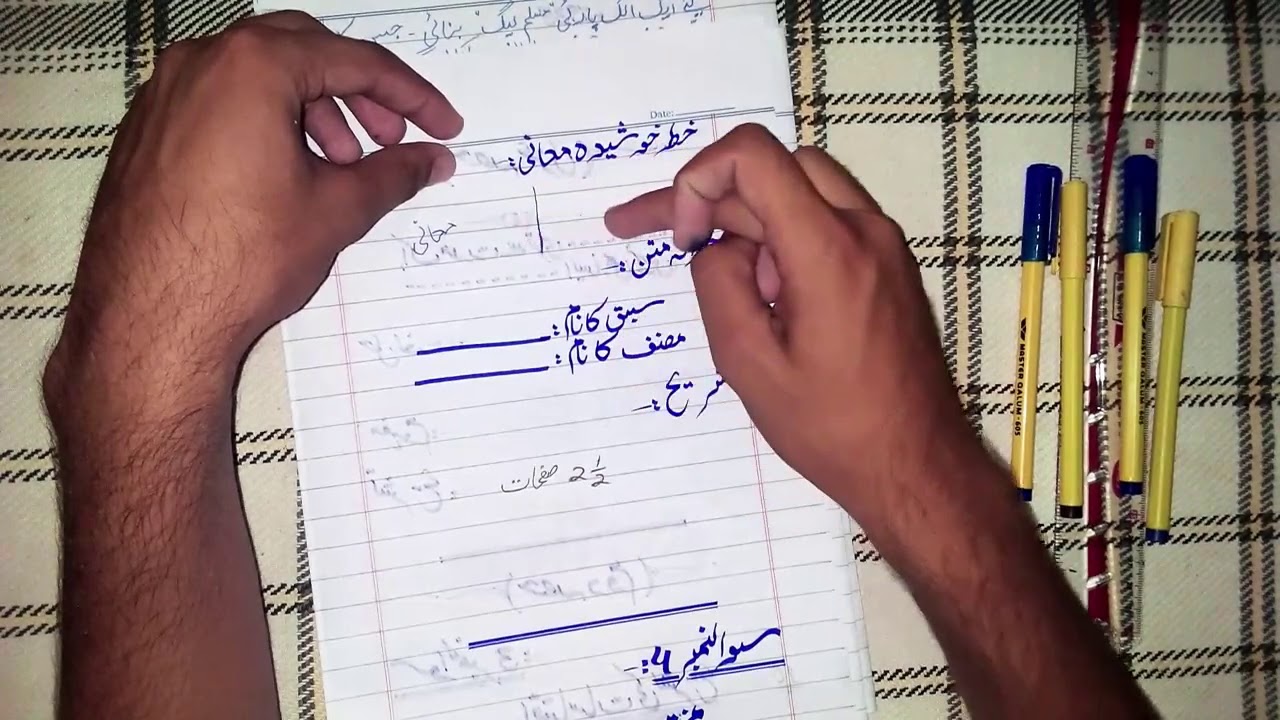 لیے ایک الگ پارٹی "مسلم لیگ" بنائی۔ جس
Date:
خط خوشیدہ معانی:
معانی
متن:
سبق کا نام:
مصنف کا نام:
تشریح:
2 1/2 صفحات
سوالنمبر 4:
MASTER GALUM-605